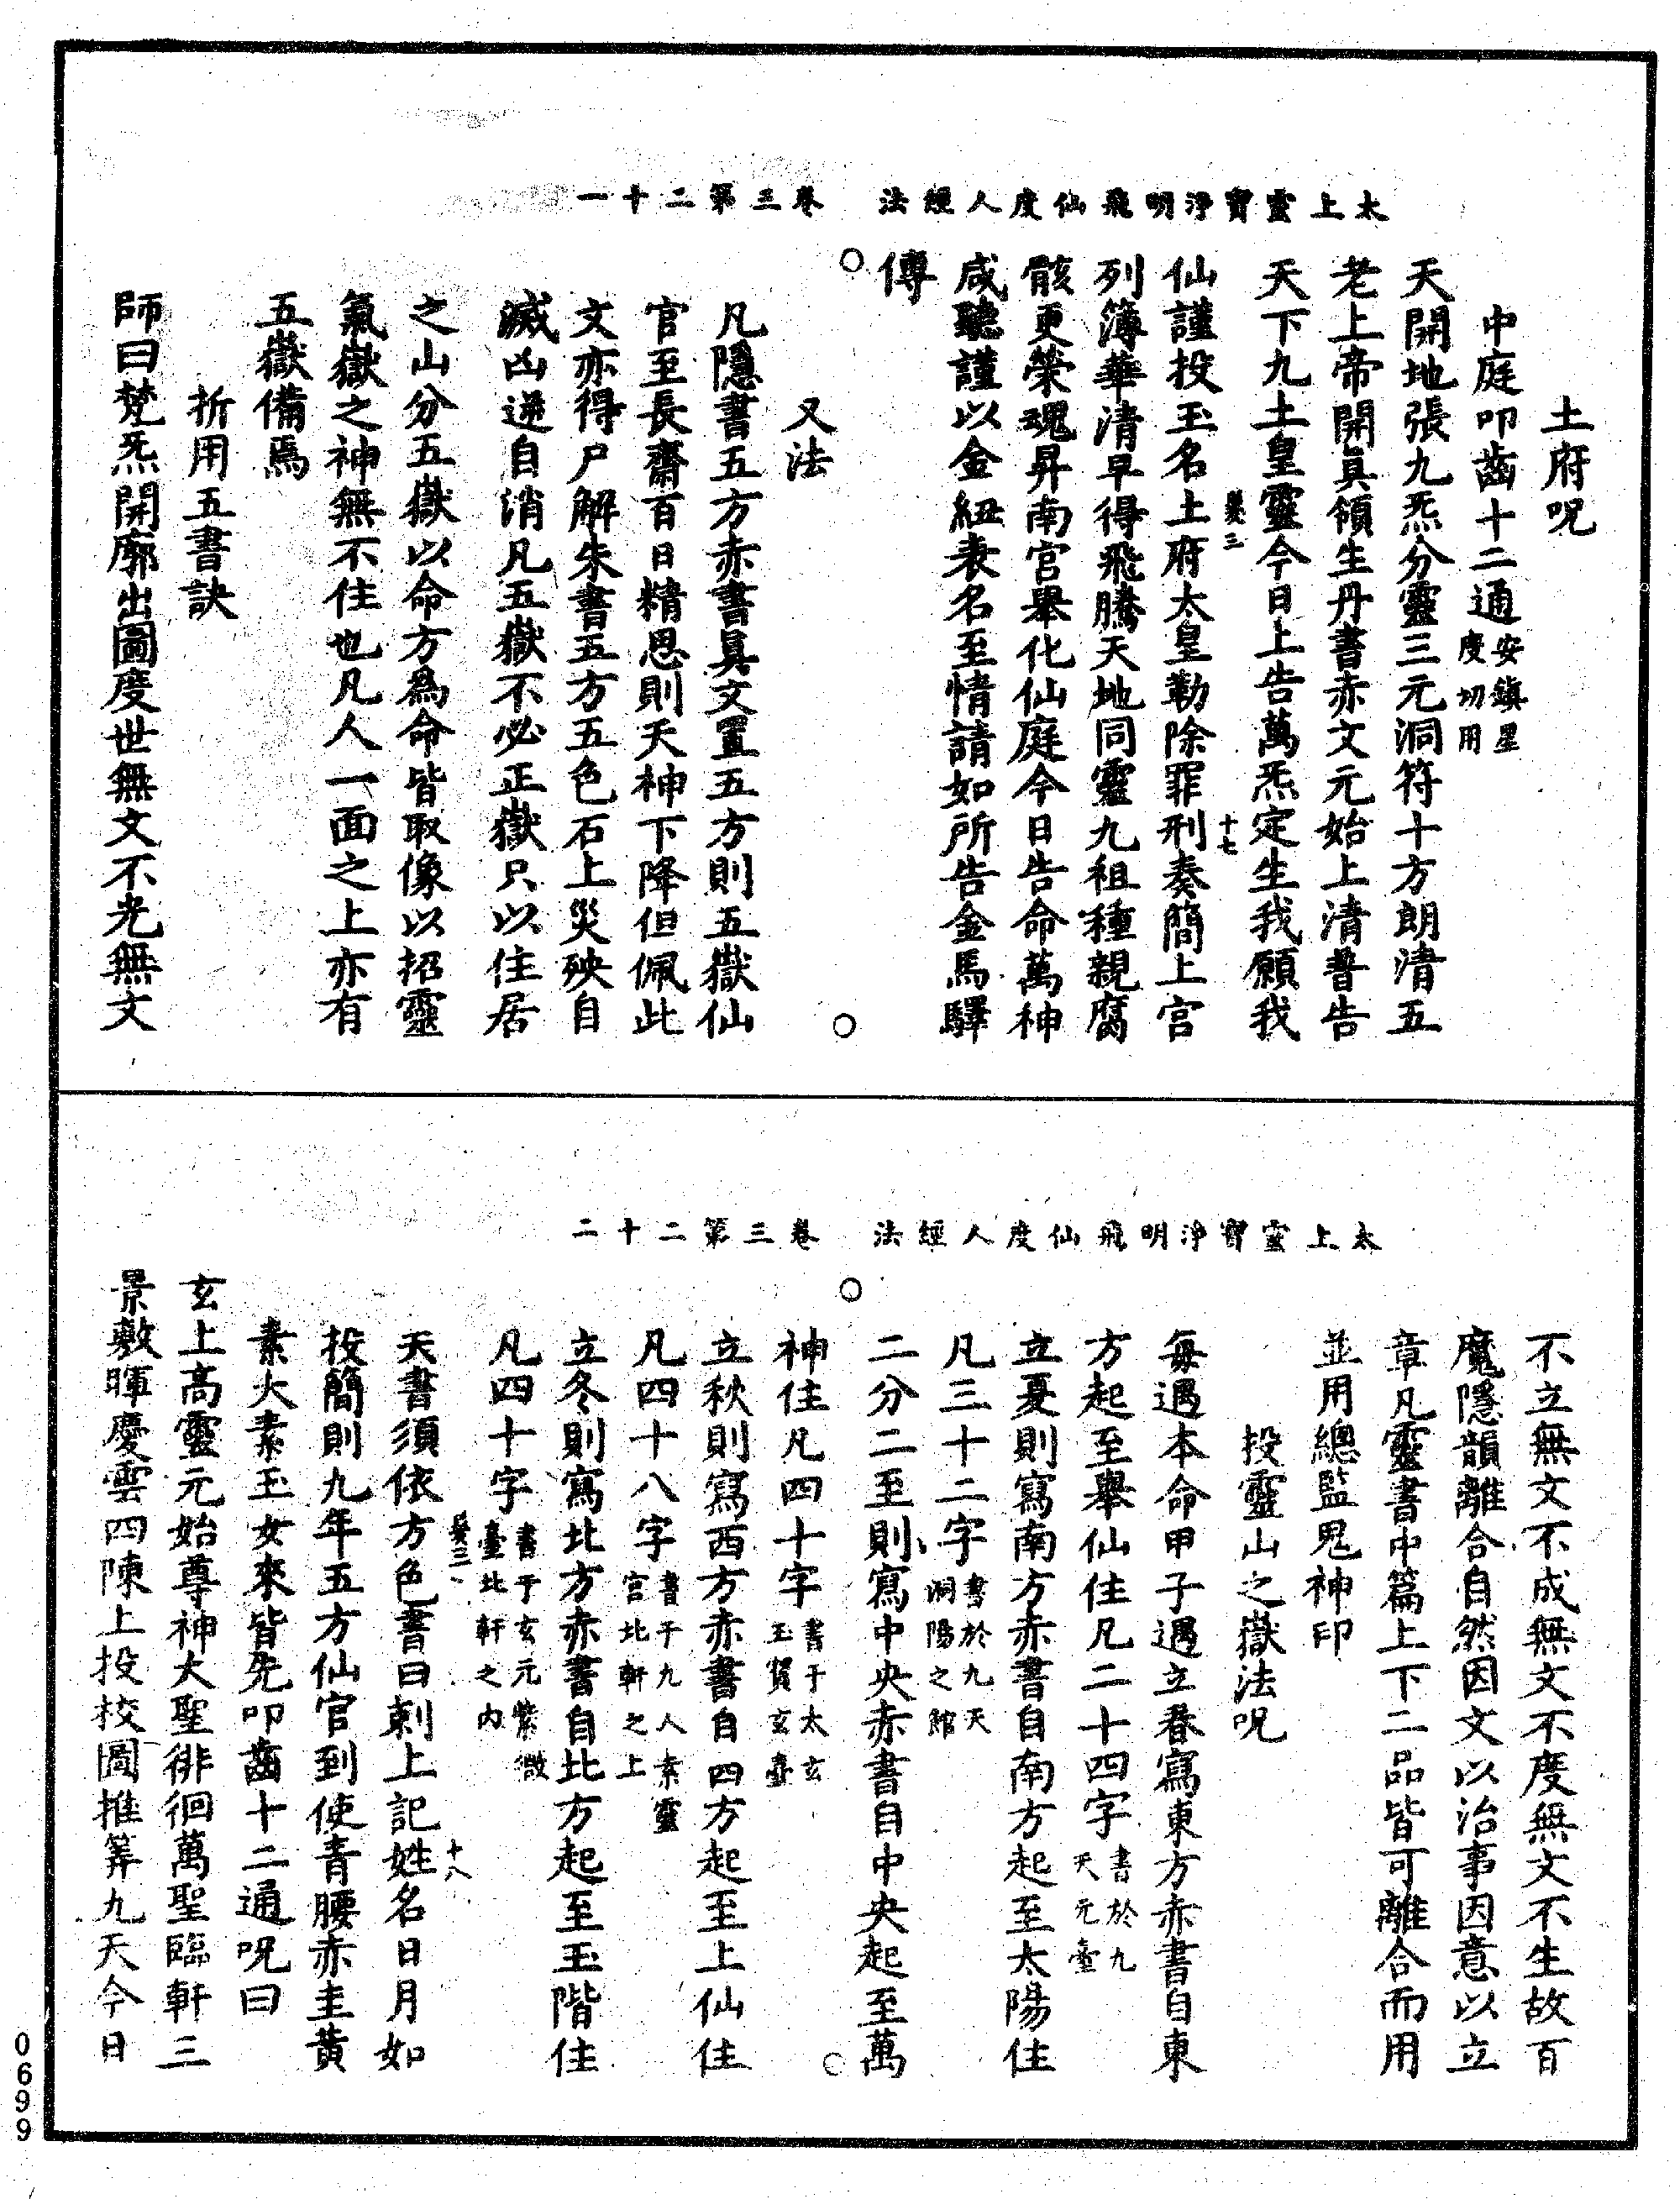 太上靈寶淨明飛仙度人經法　卷三第二十一
土府呪
中庭叩齒十二通安鎮星度切用
天開地張九炁分靈三元洞符十方朗清五
老上帝開真領生丹書赤文元始上清普告
天下九土皇靈今日上告萬炁定生我願我
髮三　十七
仙謹投玉名土府太皇勒除罪刑奏簡上宮
列簿華清早得飛騰天地同靈九祖種親腐
骸更榮魂昇南宮舉化仙庭今日告命萬神
咸聽謹以金紐表名至情請如所告金馬驛
傳
又法
凡隱書五方赤書真文置五方則五嶽仙
官至長齋百日精思則天神下降但佩此
文亦得尸解朱書五方五色石上災殃自
滅凶逆自消凡五嶽不必正嶽只以住居
之山分五嶽以命方為命皆取像以招靈
氣嶽之神無不住也凡人一面之上亦有
五嶽備焉
折用五書訣
師曰梵炁開廓出圖度世無文不光無文
太上靈寶淨明飛仙度人經法　卷三第二十二
不立無文不成無文不度無文不生故百
魔隱韻離合自然因文以治事因意以立
章凡靈書中篇上下二品皆可離合而用
並用總監鬼神印
投靈山之嶽法呪
每遇本命甲子遇立春寫東方赤書自東
方起至舉仙住凡二十四字書於九天元臺
立夏則寫南方赤書自南方起至太陽住
凡三十二字書於九天洞陽之館
二分二至則寫中央赤書自中央起至萬
神住凡四十字書于太玄玉質玄臺
立秋則寫西方赤書自四方起至上仙住
凡四十八字書于九人素靈宮北軒之上
立冬則寫北方赤書自北方起至玉階住
凡四十字書于玄元紫微臺北軒之內
髮三　十八
天書須依方色書曰剌上記姓名日月如
投簡則九年五方仙官到使青腰赤圭黃
素大素玉女來皆先叩齒十二通呪曰
玄上高靈元始尊神大聖徘徊萬聖臨軒三
景敷暉慶雲四陳上投校圖推筭九天今日
0699